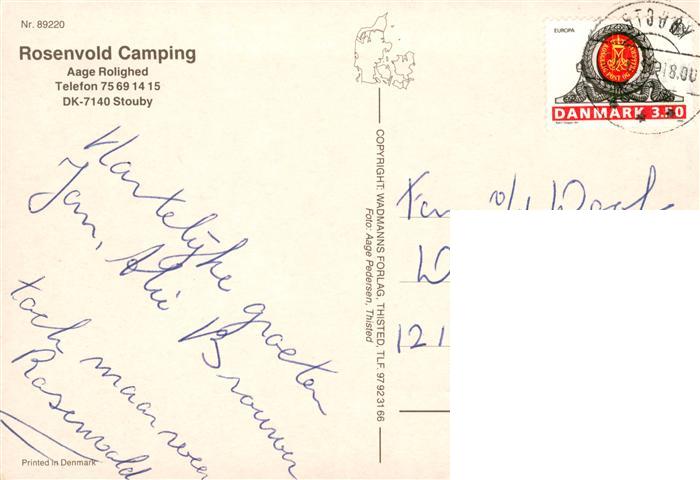 Nr. 89220
Rosenvold Camping
Aage Rolighed
Telefon 75 69 14 15
DK-7140 Stouby
Hartelijke groeten
Jan, Alie Brouwer
toch maar weer
Rosenvold
Printed in Denmark
COPYRIGHT: WADMANNS FORLAG, THISTED, TLF. 97 92 31 66
Foto: Aage Pedersen, Thisted
EUROPA
DANMARK 3.50
STOUBY
18.00
Fam v/d
121